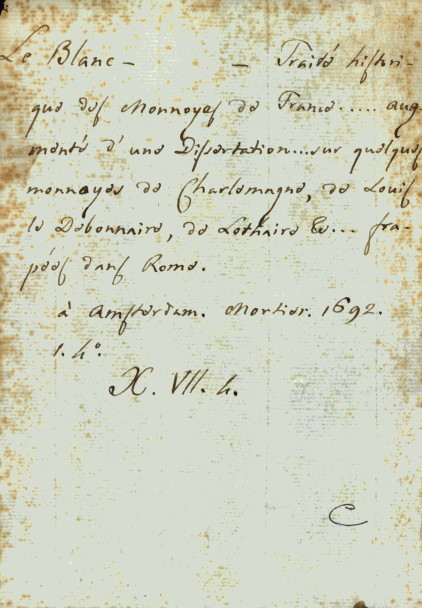 Le Blanc – – Traité histori-
que des Monnoyes de France..... aug-
menté d'une Dissertation...sur quelques
monnoyes de Charlemagne, de Louis
le Debonnaire, de Lothaire &c... fra-
pées dans Rome.
à Amsterdam. Mortier. 1692.
1. 4°.
X. VII. 4.
C